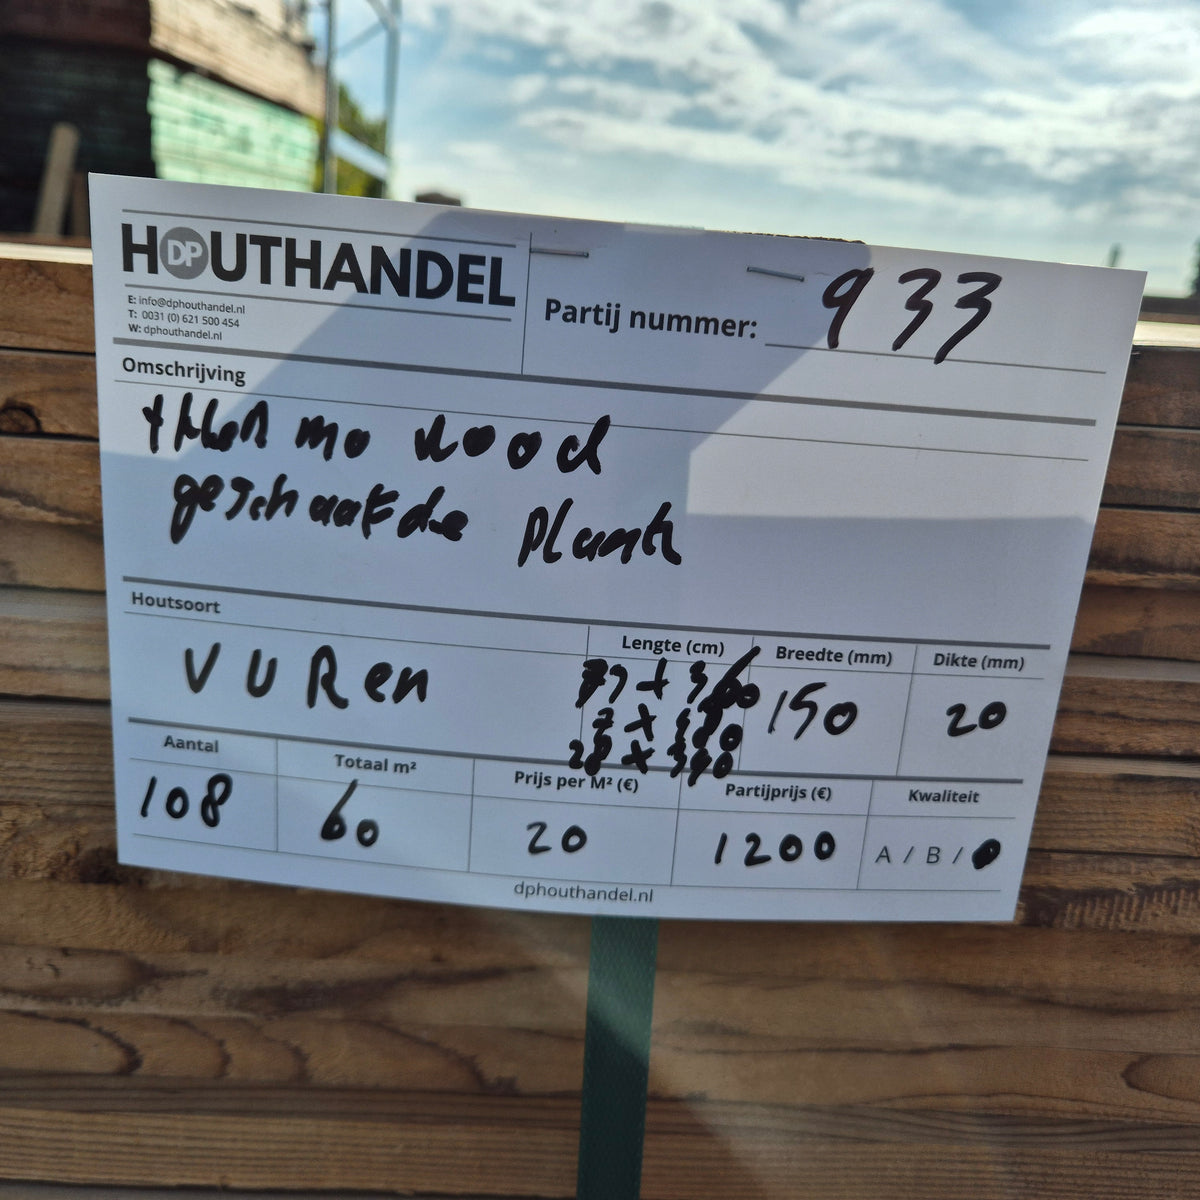 HOUTHANDEL
DP
E: info@dphouthandel.nl
T: 0031 (0) 621 500 454
W: dphouthandel.nl
Partij nummer: 933
Omschrijving
thermo wood
geschaafde plank
Houtsoort
VUREN
Lengte (cm)
73 x 360
7 x 480
28 x 390
Breedte (mm)
150
Dikte (mm)
20
Aantal
108
Totaal m²
60
Prijs per M² (€)
20
Partijprijs (€)
1200
Kwaliteit
A / B /
dphouthandel.nl